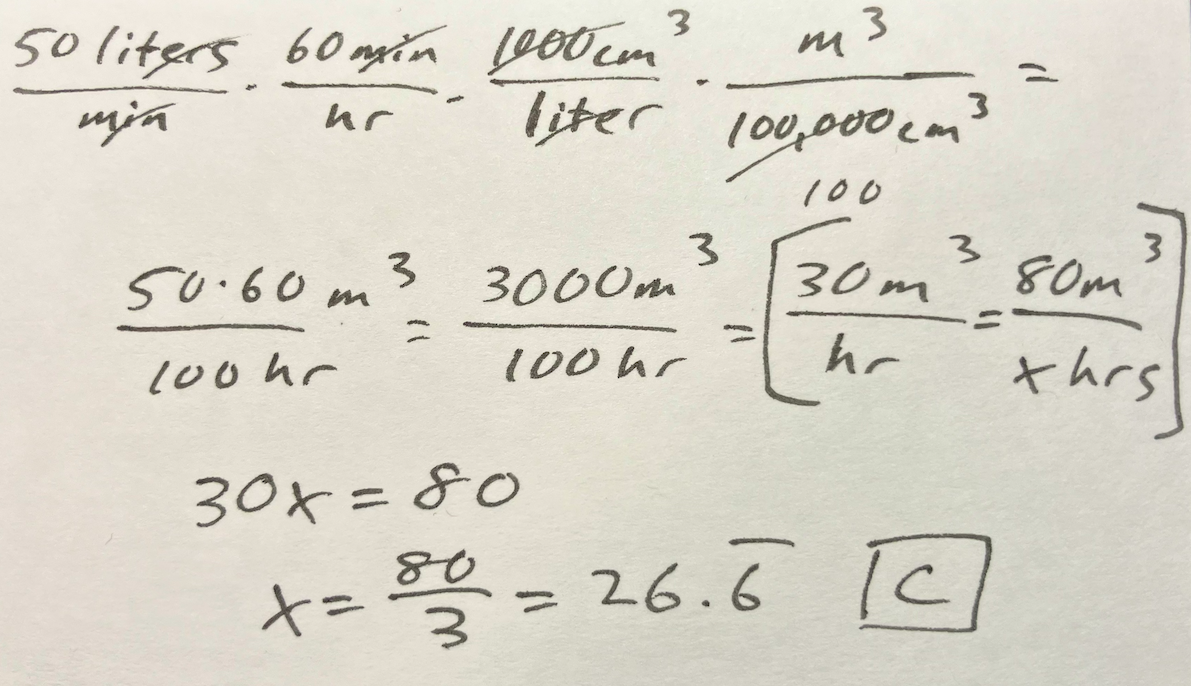 50 liters/min · 60 min/hr · 1000 cm³/liter · m³/100,000 cm³ =
100
50·60 m³/100 hr = 3000 m³/100 hr = [30 m³/hr = 80 m³/x hrs]
30x = 80
x = 80/3 = 26.6̅ C